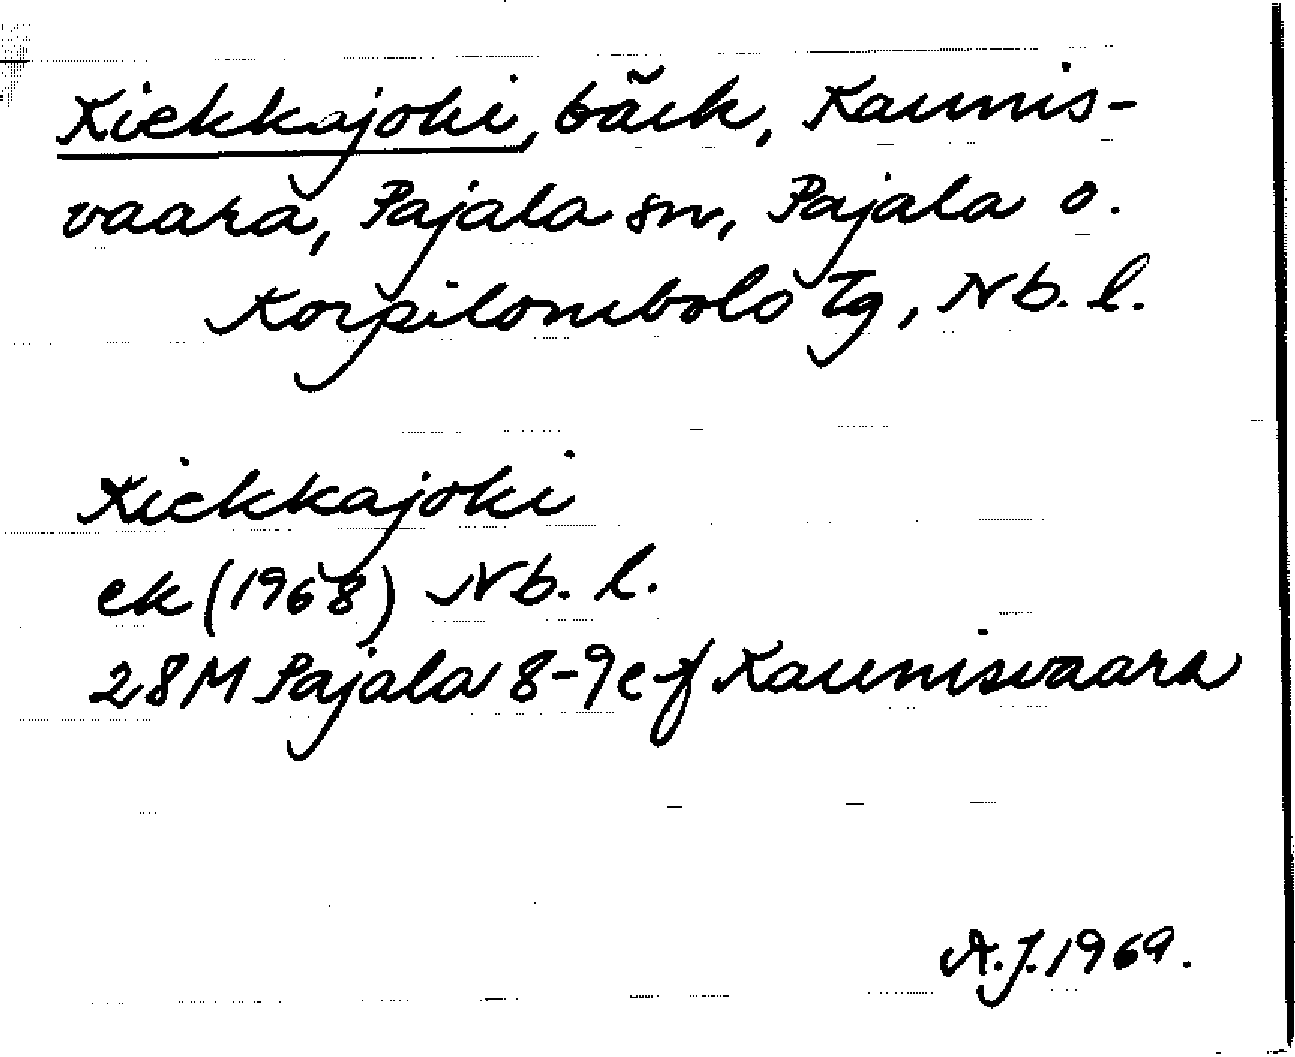 Kiekkajoki, bäck, Kaunis-
vaara, Pajala sn, Pajala o.
Korpilombolo tg, Nb. l.
Kiekkajoki
ek (1968) Nb. l.
28M Pajala 8-9 e-f Kaunisvaara
A.J. 1969.